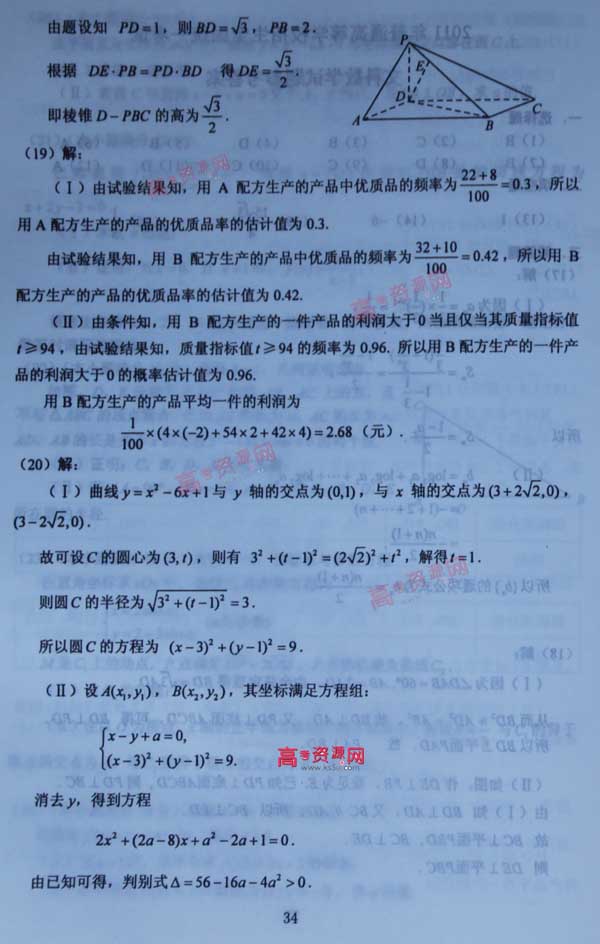 由题设知 PD=1，则BD=√3，PB=2.
根据 DE·PB=PD·BD 得DE=√3/2.
即棱锥D－PBC的高为√3/2.
P
E
D
C
A
B
(19) 解：
(Ⅰ) 由试验结果知，用 A 配方生产的产品中优质品的频率为(22+8)/100=0.3，所以
用A配方生产的产品的优质品率的估计值为0.3.
由试验结果知，用 B 配方生产的产品中优质品的频率为(32+10)/100=0.42，所以用 B
配方生产的产品的优质品率的估计值为0.42.
(Ⅱ) 由条件知，用 B 配方生产的一件产品的利润大于0当且仅当其质量指标值
t≥94，由试验结果知，质量指标值t≥94的频率为0.96. 所以用B配方生产的一件产
品的利润大于0的概率估计值为0.96.
用B配方生产的产品平均一件的利润为
1/100×(4×(-2)+54×2+42×4)=2.68（元）.
(20) 解：
(Ⅰ) 曲线y=x²-6x+1与 y 轴的交点为(0,1)，与 x 轴的交点为(3+2√2,0)，
(3-2√2,0).
故可设C的圆心为(3,t)，则有 3²+(t-1)²=(2√2)²+t²，解得t=1.
则圆C的半径为√(3²+(t-1)²)=3.
所以圆C的方程为 (x-3)²+(y-1)²=9.
(Ⅱ) 设A(x₁,y₁)，B(x₂,y₂)，其坐标满足方程组：
x-y+a=0,
(x-3)²+(y-1)²=9.
高考资源网
www.ks5u.com
消去y，得到方程
2x²+(2a-8)x+a²-2a+1=0.
由已知可得，判别式Δ=56-16a-4a²>0.
34
高考资源网
高考资源网
高考资源网
高考资源网